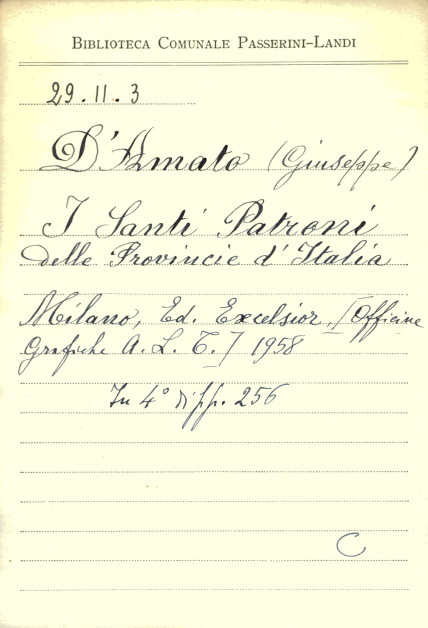 BIBLIOTECA COMUNALE PASSERINI-LANDI
29.11.3
D'Amato (Giuseppe)
I Santi Patroni
delle Provincie d'Italia
Milano, Ed. Excelsior, [Officine
Grafiche A. L. E.] 1958
In 4° di pp. 256
C